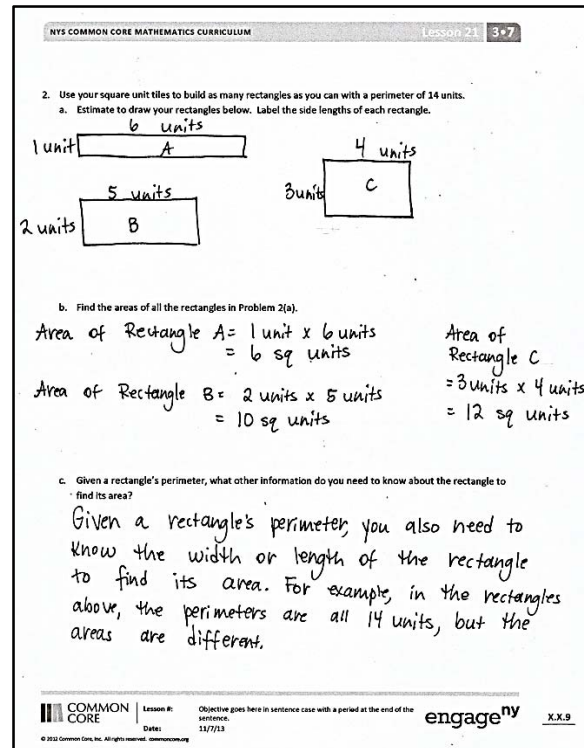 NYS COMMON CORE MATHEMATICS CURRICULUM
Lesson 21 3•7
2. Use your square unit tiles to build as many rectangles as you can with a perimeter of 14 units.
a. Estimate to draw your rectangles below. Label the side lengths of each rectangle.
6 units
1 unit
A
4 units
3 units
C
5 units
2 units
B
b. Find the areas of all the rectangles in Problem 2(a).
Area of Rectangle A = 1 unit x 6 units
= 6 sq units
Area of Rectangle B = 2 units x 5 units
= 10 sq units
Area of
Rectangle C
= 3 units x 4 units
= 12 sq units
c. Given a rectangle's perimeter, what other information do you need to know about the rectangle to
find its area?
Given a rectangle's perimeter, you also need to
know the width or length of the rectangle
to find its area. For example, in the rectangles
above, the perimeters are all 14 units, but the
areas are different.
COMMON
CORE
Lesson #:
Date:
Objective goes here in sentence case with a period at the end of the
sentence.
11/7/13
engageny
X.X.9
© 2012 Common Core, Inc. All rights reserved. commoncore.org